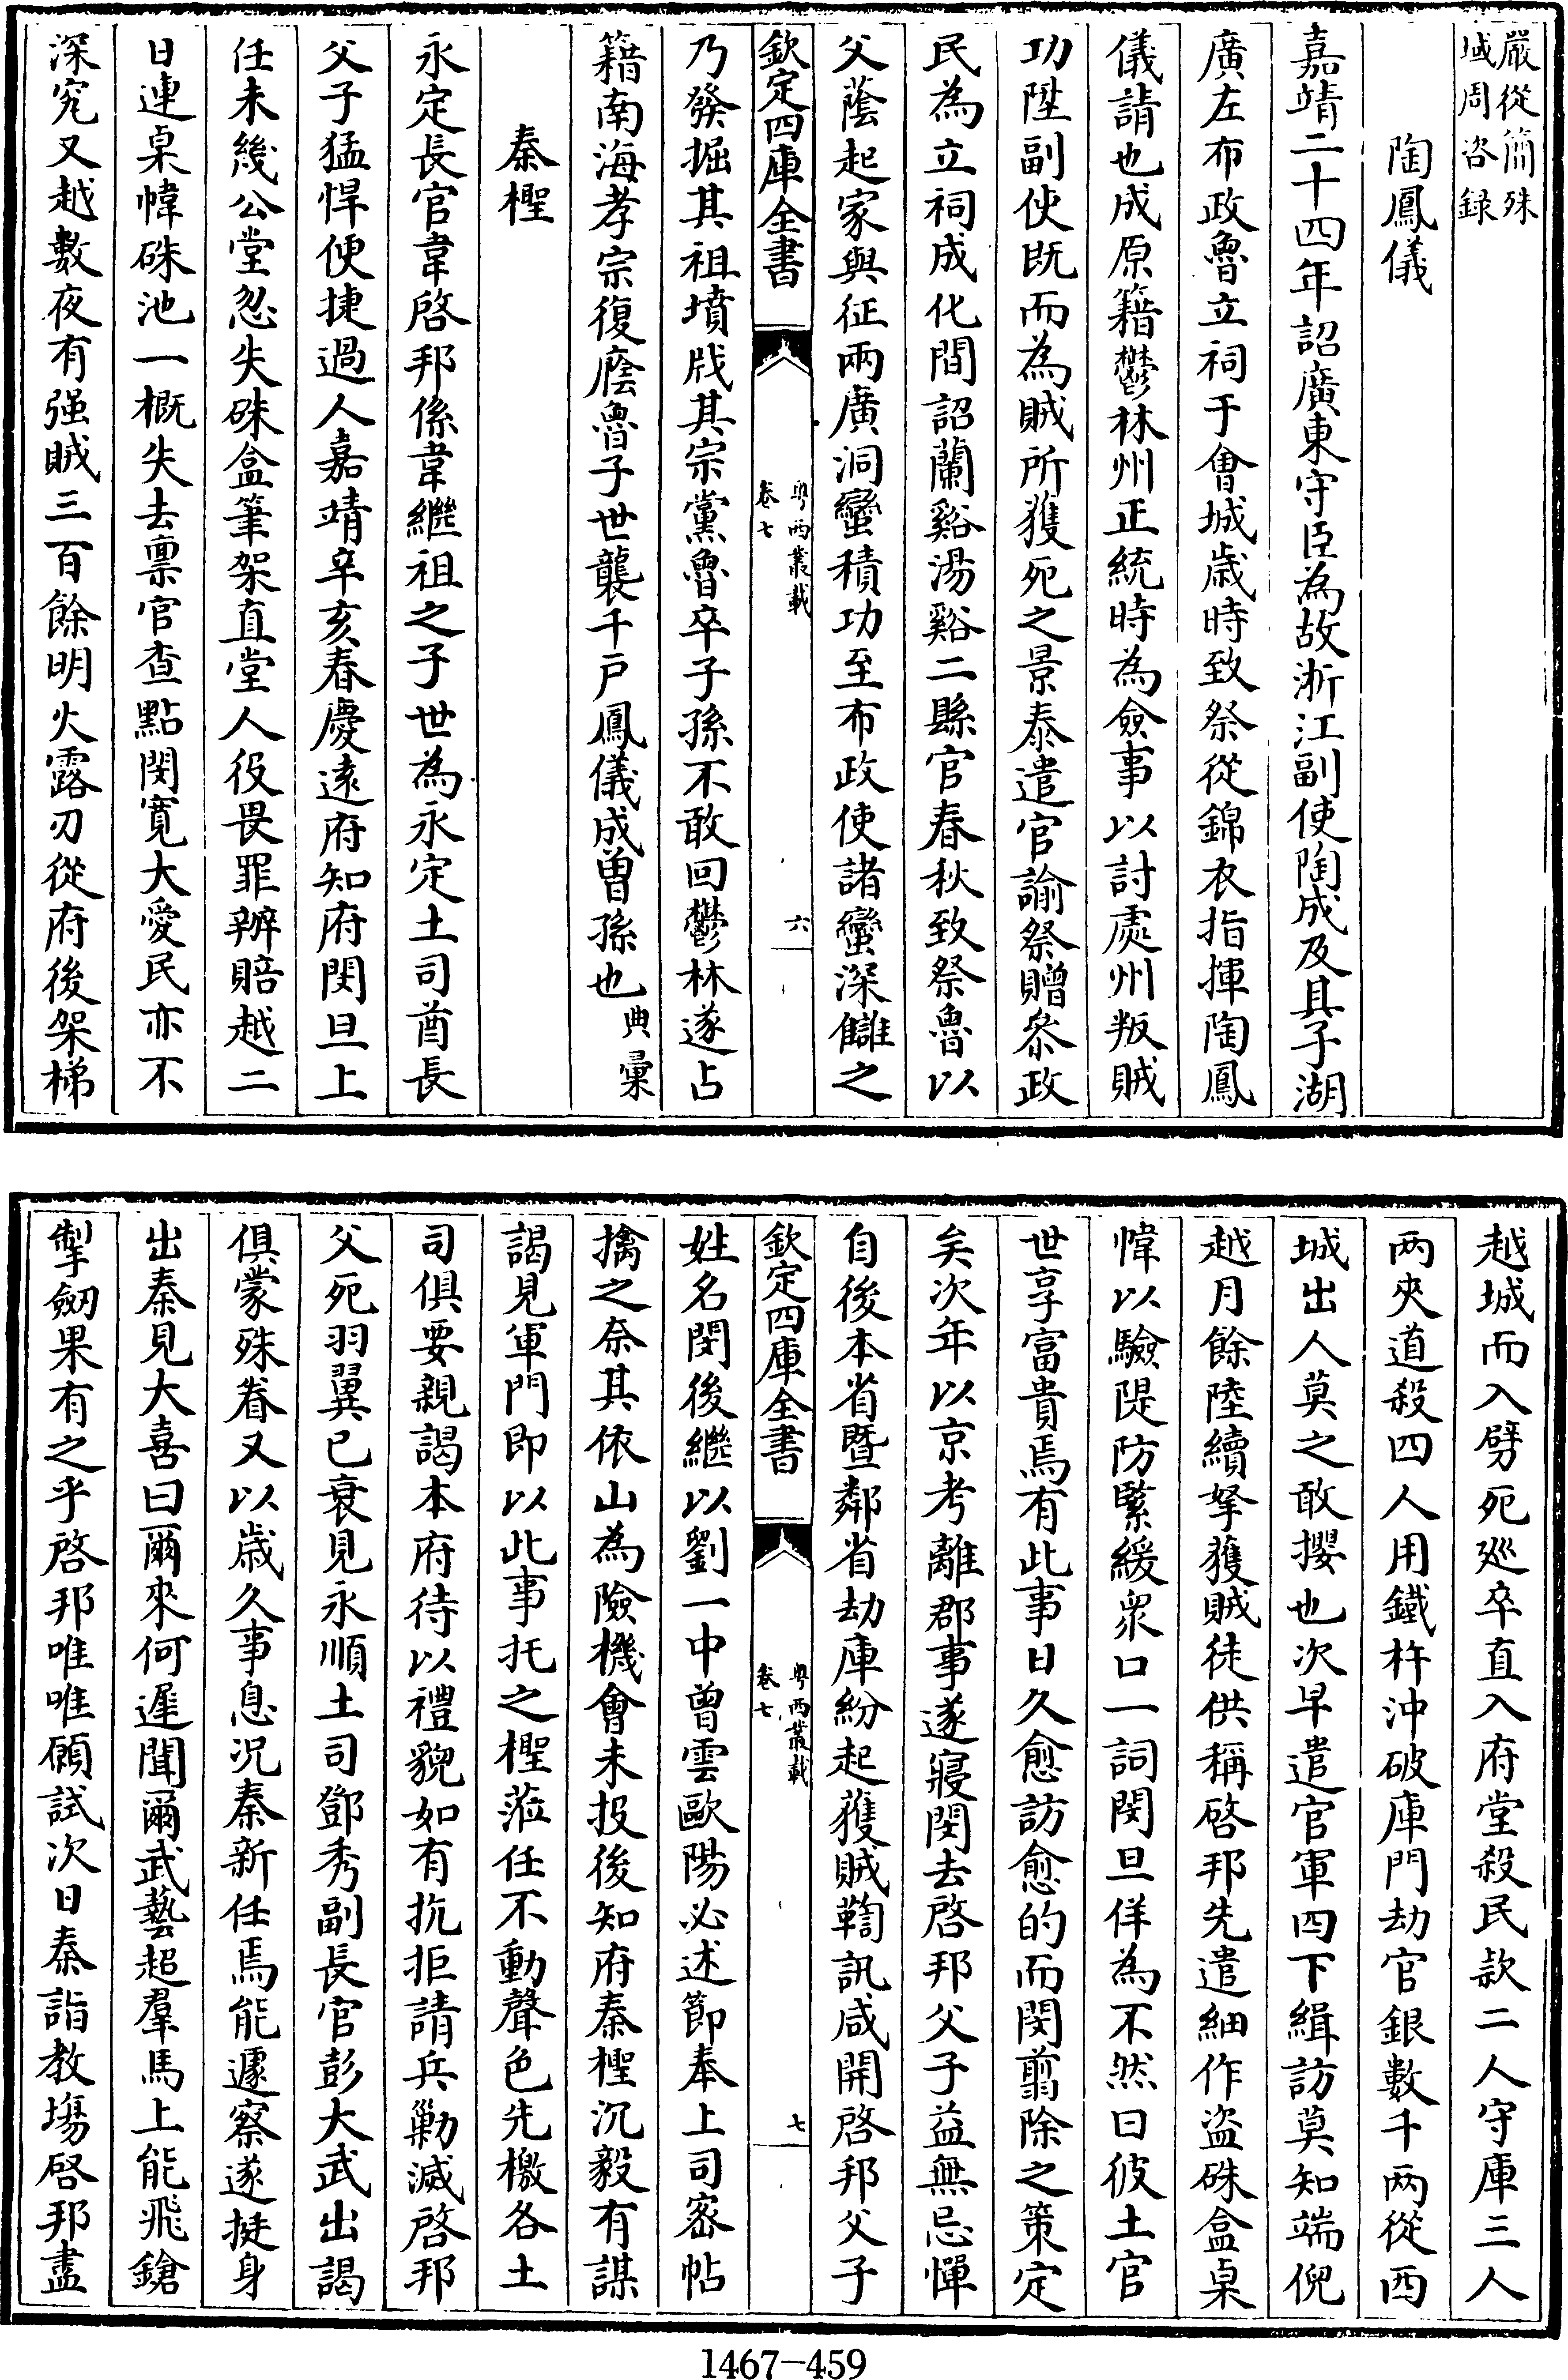 嚴從簡殊
域周咨錄
陶鳳儀
嘉靖二十四年詔廣東守臣為故浙江副使陶成及其子湖
廣左布政魯立祠于會城歲時致祭從錦衣指揮陶鳳
儀請也成原籍鬱林州正統時為僉事以討處州叛賊
功陞副使既而為賊所獲死之景泰遣官諭祭贈叅政
民為立祠成化間詔蘭谿湯谿二縣官春秋致祭魯以
父蔭起家與征兩廣洞蠻積功至布政使諸蠻深讎之
欽定四庫全書
粤西叢載
卷七
六
乃發掘其祖墳戕其宗黨魯卒子孫不敢回鬱林遂占
籍南海孝宗復廕魯子世襲千戶鳳儀成曾孫也典彙
秦檉
永定長官韋啓邦係韋繼祖之子世為永定土司酋長
父子猛悍便捷過人嘉靖辛亥春慶遠府知府閔旦上
任未幾公堂忽失硃盒筆架直堂人役畏罪辦賠越二
日連桌幃硃池一概失去禀官查點閔寛大愛民亦不
深究又越數夜有强賊三百餘明火露刃從府後架梯
越城而入劈死廵卒直入府堂殺民款二人守庫三人
兩夾道殺四人用鐵杵沖破庫門劫官銀數千兩從西
城出人莫之敢攖也次早遣官軍四下緝訪莫知端倪
越月餘陸續拏獲賊徒供稱啓邦先遣細作盜硃盒桌
幃以驗隄防緊緩衆口一詞閔旦佯為不然曰彼土官
世享富貴焉有此事日久愈訪愈的而閔翦除之策定
矣次年以京考離郡事遂寢閔去啓邦父子益無忌憚
自後本省暨鄰省劫庫紛起獲賊鞫訊咸開啓邦父子
欽定四庫全書
粤西叢載
卷七
七
姓名閔後繼以劉一中曾雲歐陽必述節奉上司宻帖
擒之奈其依山為險機會未投後知府秦檉沉毅有謀
謁見軍門即以此事托之檉蒞任不動聲色先檄各土
司俱要親謁本府待以禮貌如有抗拒請兵勦滅啓邦
父死羽翼已衰見永順土司鄧秀副長官彭大武出謁
俱蒙殊眷又以歲久事息况秦新任焉能遽察遂挺身
出秦見大喜曰爾來何遲聞爾武藝超羣馬上能飛鎗
掣劒果有之乎啓邦唯唯願試次日秦詣教場啓邦盡
1467-459